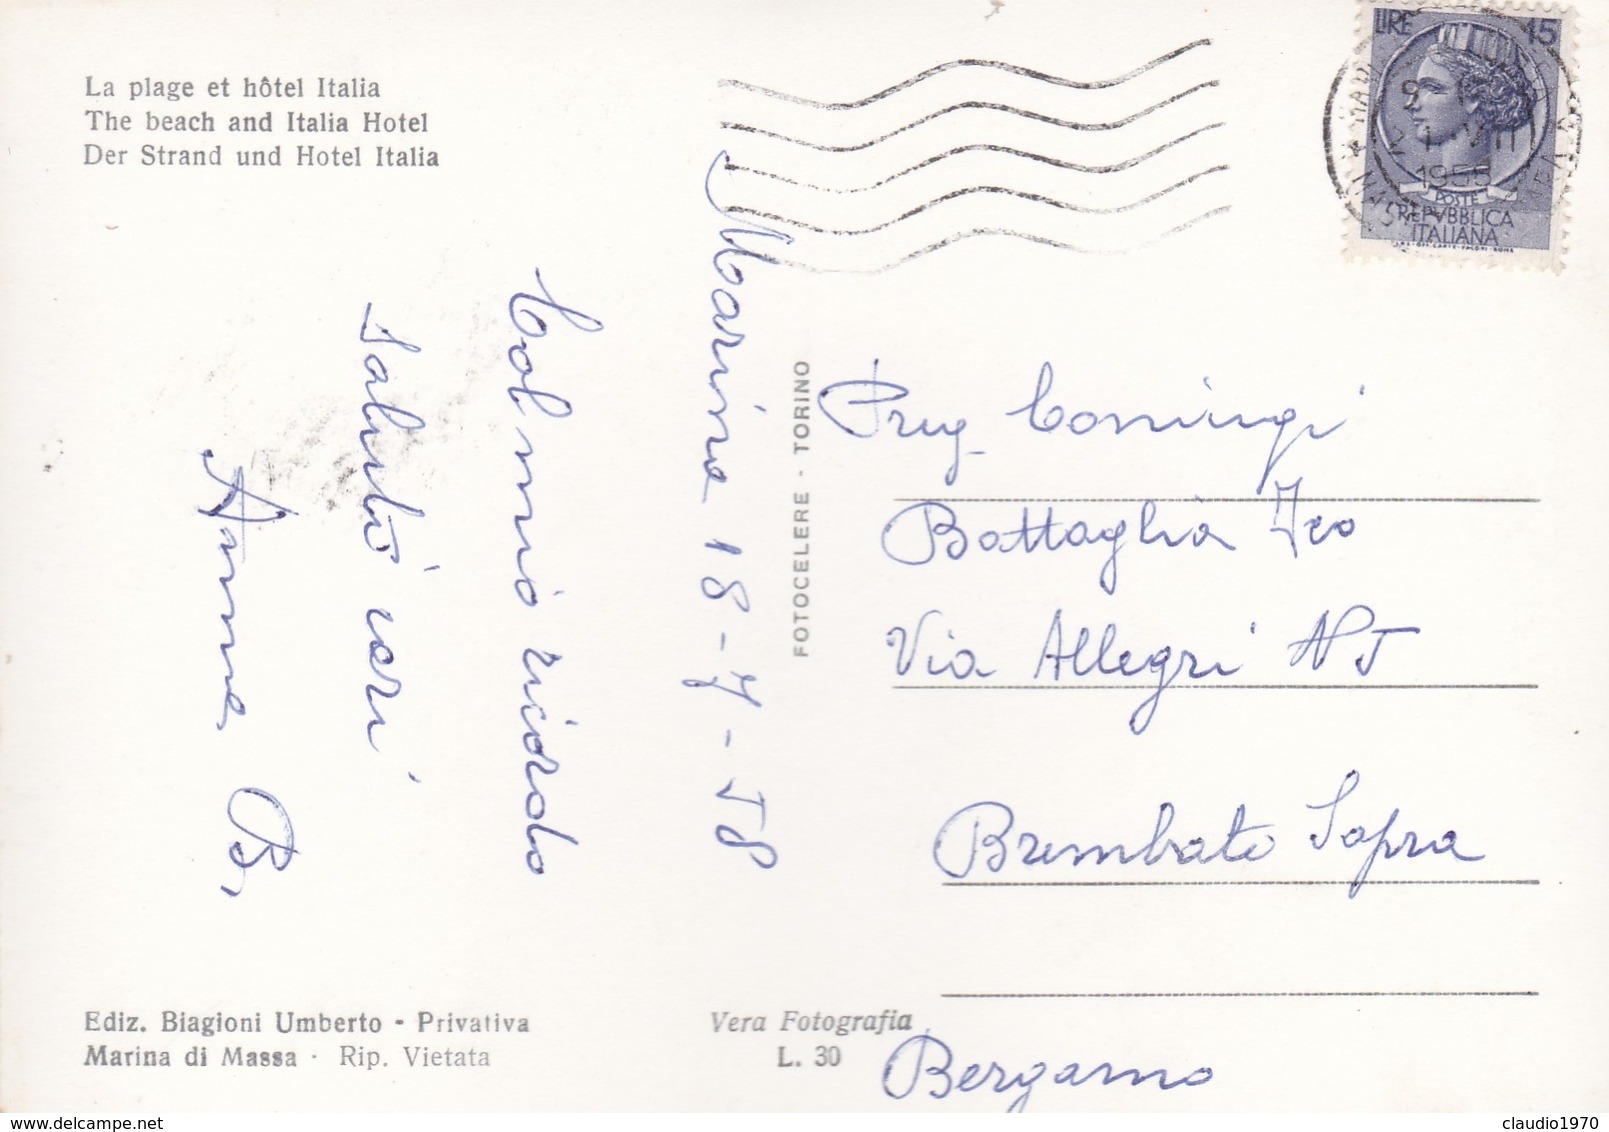 La plage et hôtel Italia
The beach and Italia Hotel
Der Strand und Hotel Italia
LIRE 15
9
21 VIII
1958
POSTE
REPVBBLICA
ITALIANA
Marina 18-7-58
Col mio ricordo
saluti cari
Anna B.
FOTOCELERE - TORINO
Preg
Battaglia
Via Allegri N 5
Brembate Sopra
Bergamo
Ediz. Biagioni Umberto - Privativa
Marina di Massa - Rip. Vietata
Vera Fotografia
L. 30
claudio1970